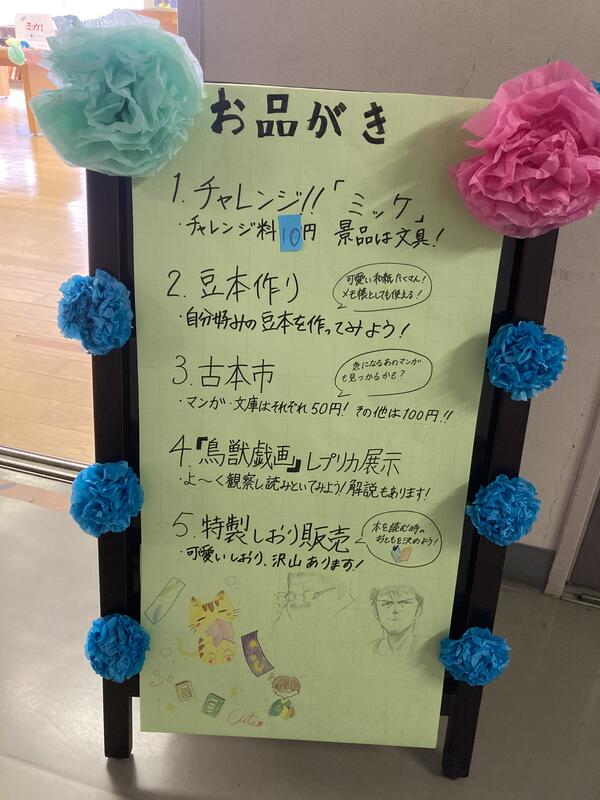 ミッケ!
お品がき
1. チャレンジ!!「ミッケ」
・チャレンジ料10円 景品は文具!
2. 豆本作り
可愛い和紙たくさん!
メモ帳としても使える!
・自分好みの豆本を作ってみよう!
3. 古本市
気になるあのマンガ
も見つかるかも?
・マンガ・文庫はそれぞれ50円! その他は100円!!
4.『鳥獣戯画』レプリカ展示
・よ〜く観察し読みといてみよう!解説もあります!
5. 特製しおり販売
本を読む時の
おともを決めよう!
・可愛いしおり、沢山あります!
So
Cute